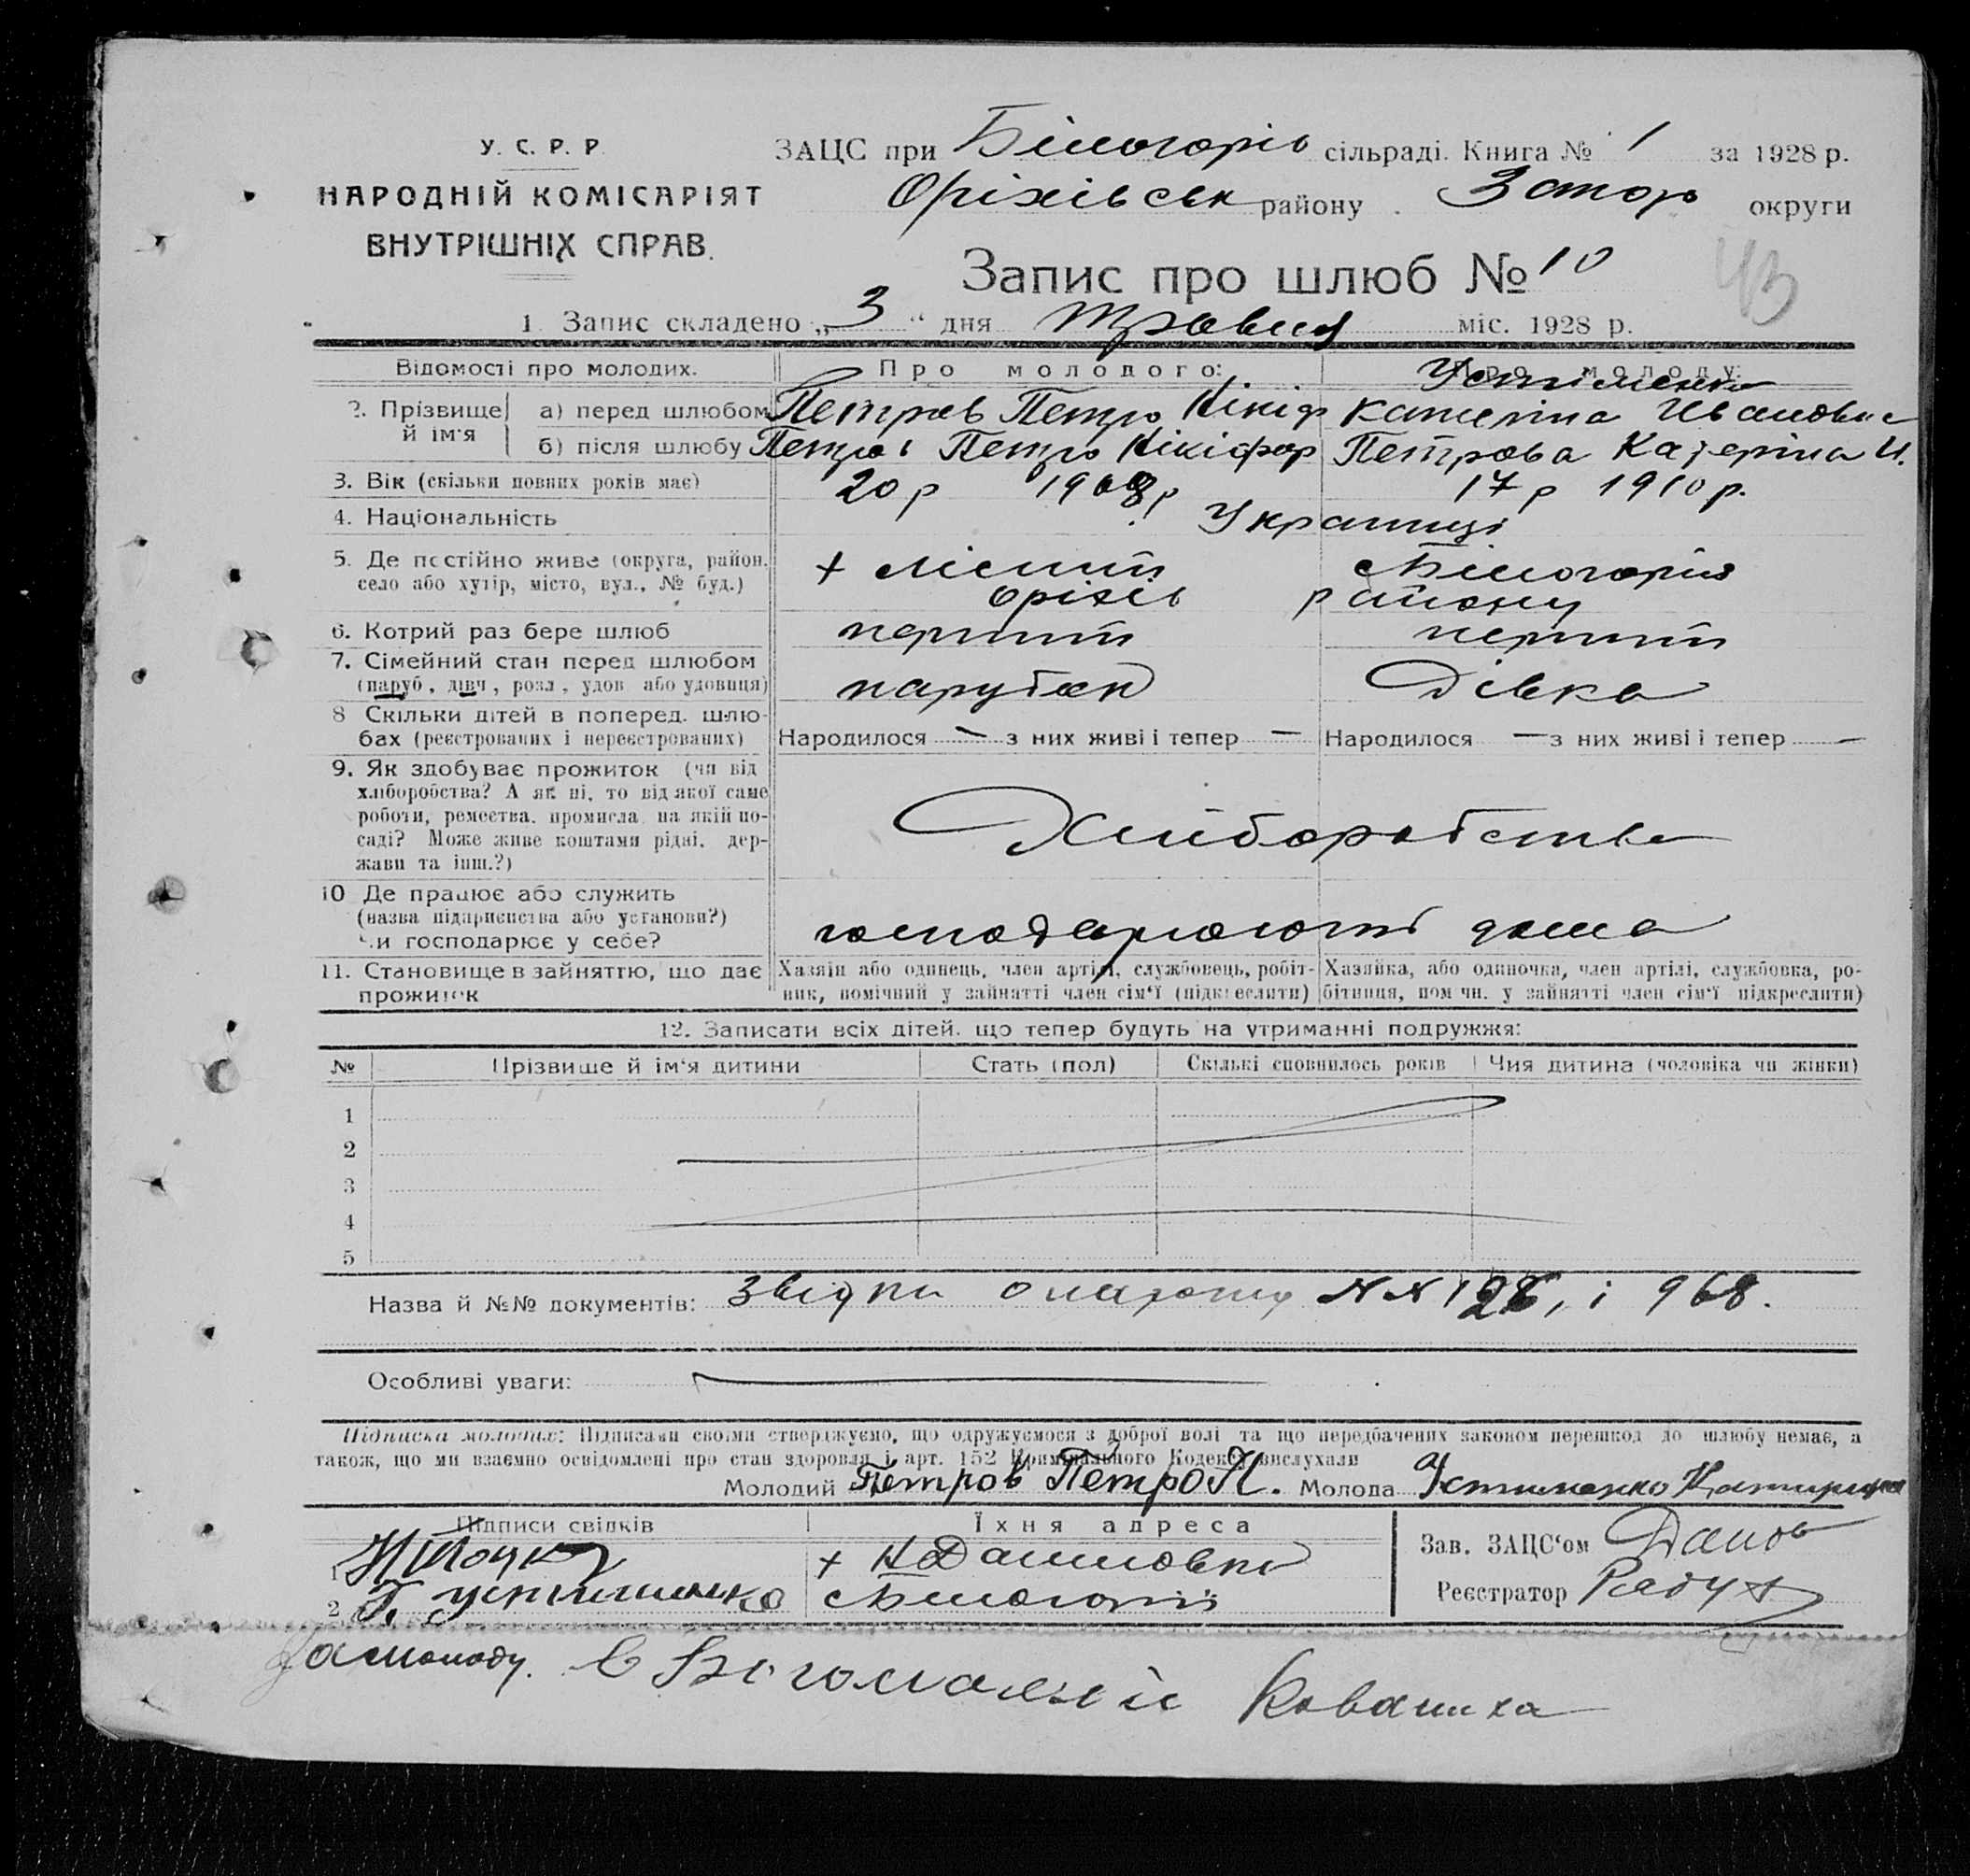 У. С. Р. Р.
НАРОДНІЙ КОМІСАРІЯТ
ВНУТРІШНІХ СПРАВ.
ЗАЦС при Білогорів сільраді. Книга № 1 за 1928 р.
Оріхівськ району Запор округи
Запис про шлюб № 10
43
1. Запис складено „3“ дня травня міс. 1928 р.
Відомості про молодих. Про молодого: Про молоду:
Устименко
2. Прізвище й ім'я а) перед шлюбом Петров Петро Нікіф Катеріна Ивановна
б) після шлюбу Петров Петро Нікіфор Петрова Катеріна И.
3. Вік (скільки повних років має) 20 р 1908 р 17 р 1910 р.
4. Національність Українці
5. Де постійно живе (округа, район, село або хутір, місто, вул., № буд.) + Оріхів Білогорія району
6. Котрий раз бере шлюб перший перший
7. Сімейний стан перед шлюбом (паруб., дівч., розл., удов. або удовиця) парубок Дівка
8 Скільки дітей в поперед. шлюбах (реєстрованих і нереєстрованих) Народилося — з них живі і тепер — Народилося — з них живі і тепер —
9. Як здобуває прожиток (чи від
хліборобства? А як ні, то від якої саме
роботи, ремества, промисла, на якій по-
саді? Може живе коштами рідні, дер-
жави та інш.?) Хліборобство
10 Де працює або служить
(назва підприємства або установи?)
Чи господарює у себе? господарюють дома
11. Становище в зайняттю, що дає прожиток Хазяїн або одинець, член артілі, службовець, робіт- Хазяйка, або одиночка, член артілі, службовка, ро-
ник, помічний у зайнятті член сім'ї (підкреслити) бітниця, помічн. у зайнятті член сім'ї підкреслити)
12. Записати всіх дітей, що тепер будуть на утриманні подружжя:
№ Прізвище й ім'я дитини Стать (пол) Скількі сповнилось років Чия дитина (чоловіка чи жінки)
1
2
3
4
5
Назва й №№ документів: Звідки № № 128, і 968.
Особливі уваги:
Підписка молодих: Підписами своїми стверджуємо, що одружуємося з доброї волі та що передбачених законом перешкод до шлюбу немає, а
також, що ми взаємно освідомлені про стан здоровля і арт. 152 Кримінального Кодексу вислухали
Молодий Петров Петро Н. Молода Устименко
Підписи свідків Їхня адреса Зав. ЗАЦС'ом
1 +
2 Г. Устименко Білогорії Реєстратор
Кованиха